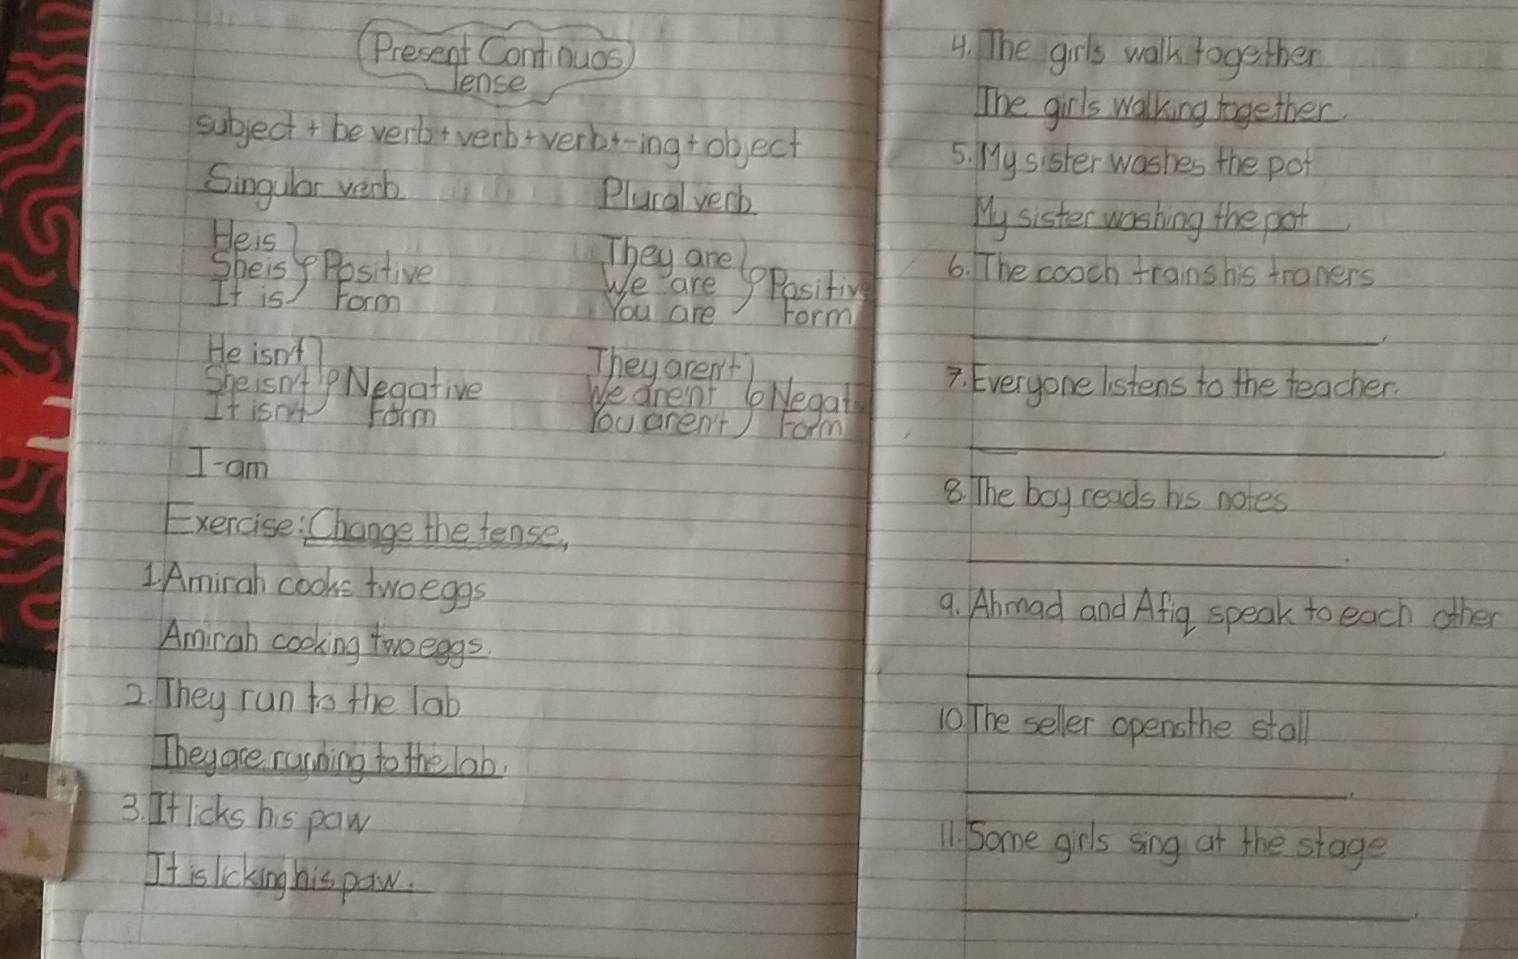 Present Continuos
Tense
subject + be verb + verb + verb + -ing + object
Singular verb
Plural verb
He is
She is
It is
Positive
Form
They are
We are
You are
Positive
Form
He isn't
She isn't
It isn't
Negative
Form
They aren't
We arent
You aren't
Negat
Form
I-am
Exercise: Change the tense,
1. Amirah cooks two eggs
Amirah cooking two eggs.
2. They run to the lab
They are running to the lab.
3. It licks his paw
It is licking his paw.
4. The girls walk together
The girls walking together.
5. My sister washes the pot
My sister washing the pot.
6. The coach trains his traners
7. Everyone listens to the teacher.
8. The boy reads his notes
9. Ahmad and Afiq speak to each other
10. The seller opens the stall
11. Some girls sing at the stage